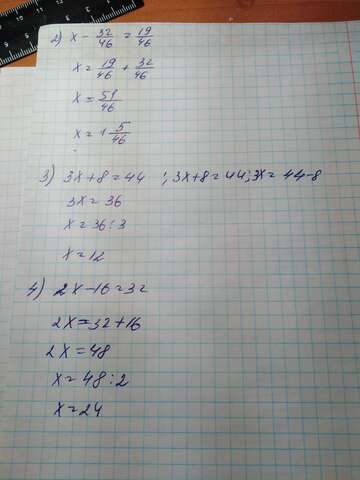 2) x - 32/46 = 19/46
x = 19/46 + 32/46
x = 51/46
x = 1 5/46
3) 3x+8=44 ; 3x+8=44; 3x=44-8
3x=36
x=36:3
x=12
4) 2x-16=32
2x=32+16
2x=48
x=48:2
x=24